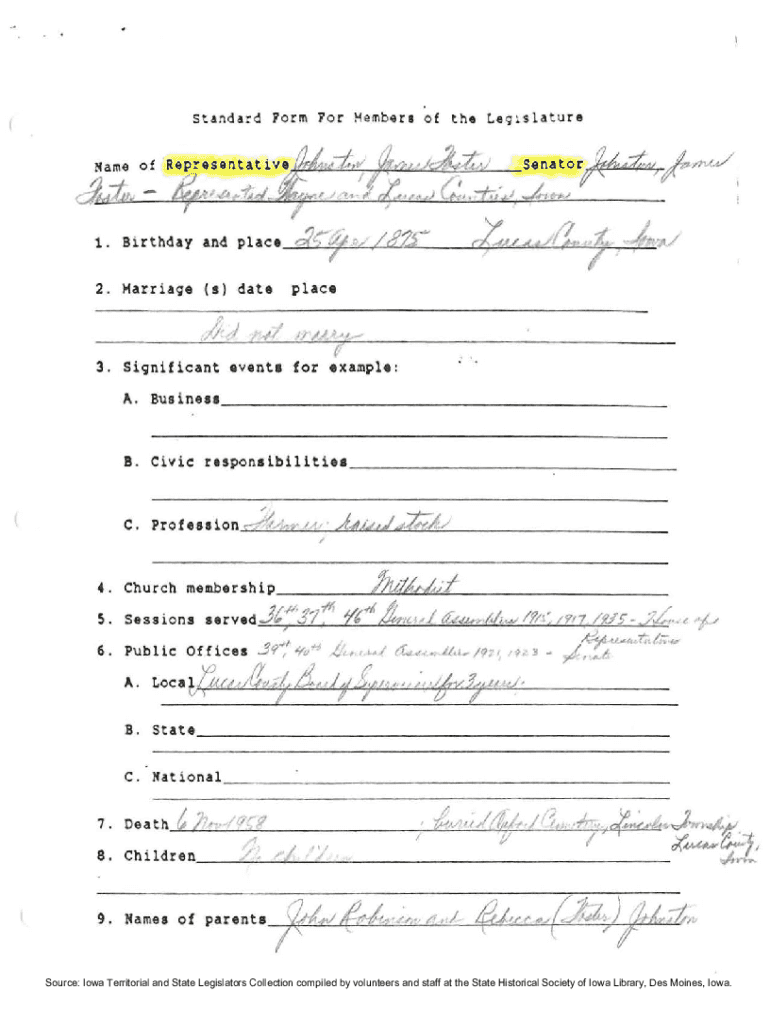 Standard Form For Members of the Legislature
Name of Representative Johnston, James Foster Senator Johnston, James
Foster - Represented Wayne and Lucas Counties, Iowa
1. Birthday and place 25 Apr 1875 Lucas County, Iowa
2. Marriage (s) date place
Did not marry
3. Significant events for example:
A. Business
B. Civic responsibilities
C. Profession Farmer; raised stock
4. Church membership Methodist
5. Sessions served 36th, 37th, 46th General Assemblies 1915, 1917, 1935 - House of
Representatives
6. Public Offices 39th, 40th General Assemblies 1921, 1923 - Senate
A. Local Lucas County Board of Supervisors for 3 years.
B. State
C. National
7. Death 6 Nov 1958 ; buried Oxford Cemetery, Lincoln Township
Lucas County,
Iowa
8. Children No children
9. Names of parents John Robinson and Rebecca (Foster) Johnston
Source: Iowa Territorial and State Legislators Collection compiled by volunteers and staff at the State Historical Society of Iowa Library, Des Moines, Iowa.